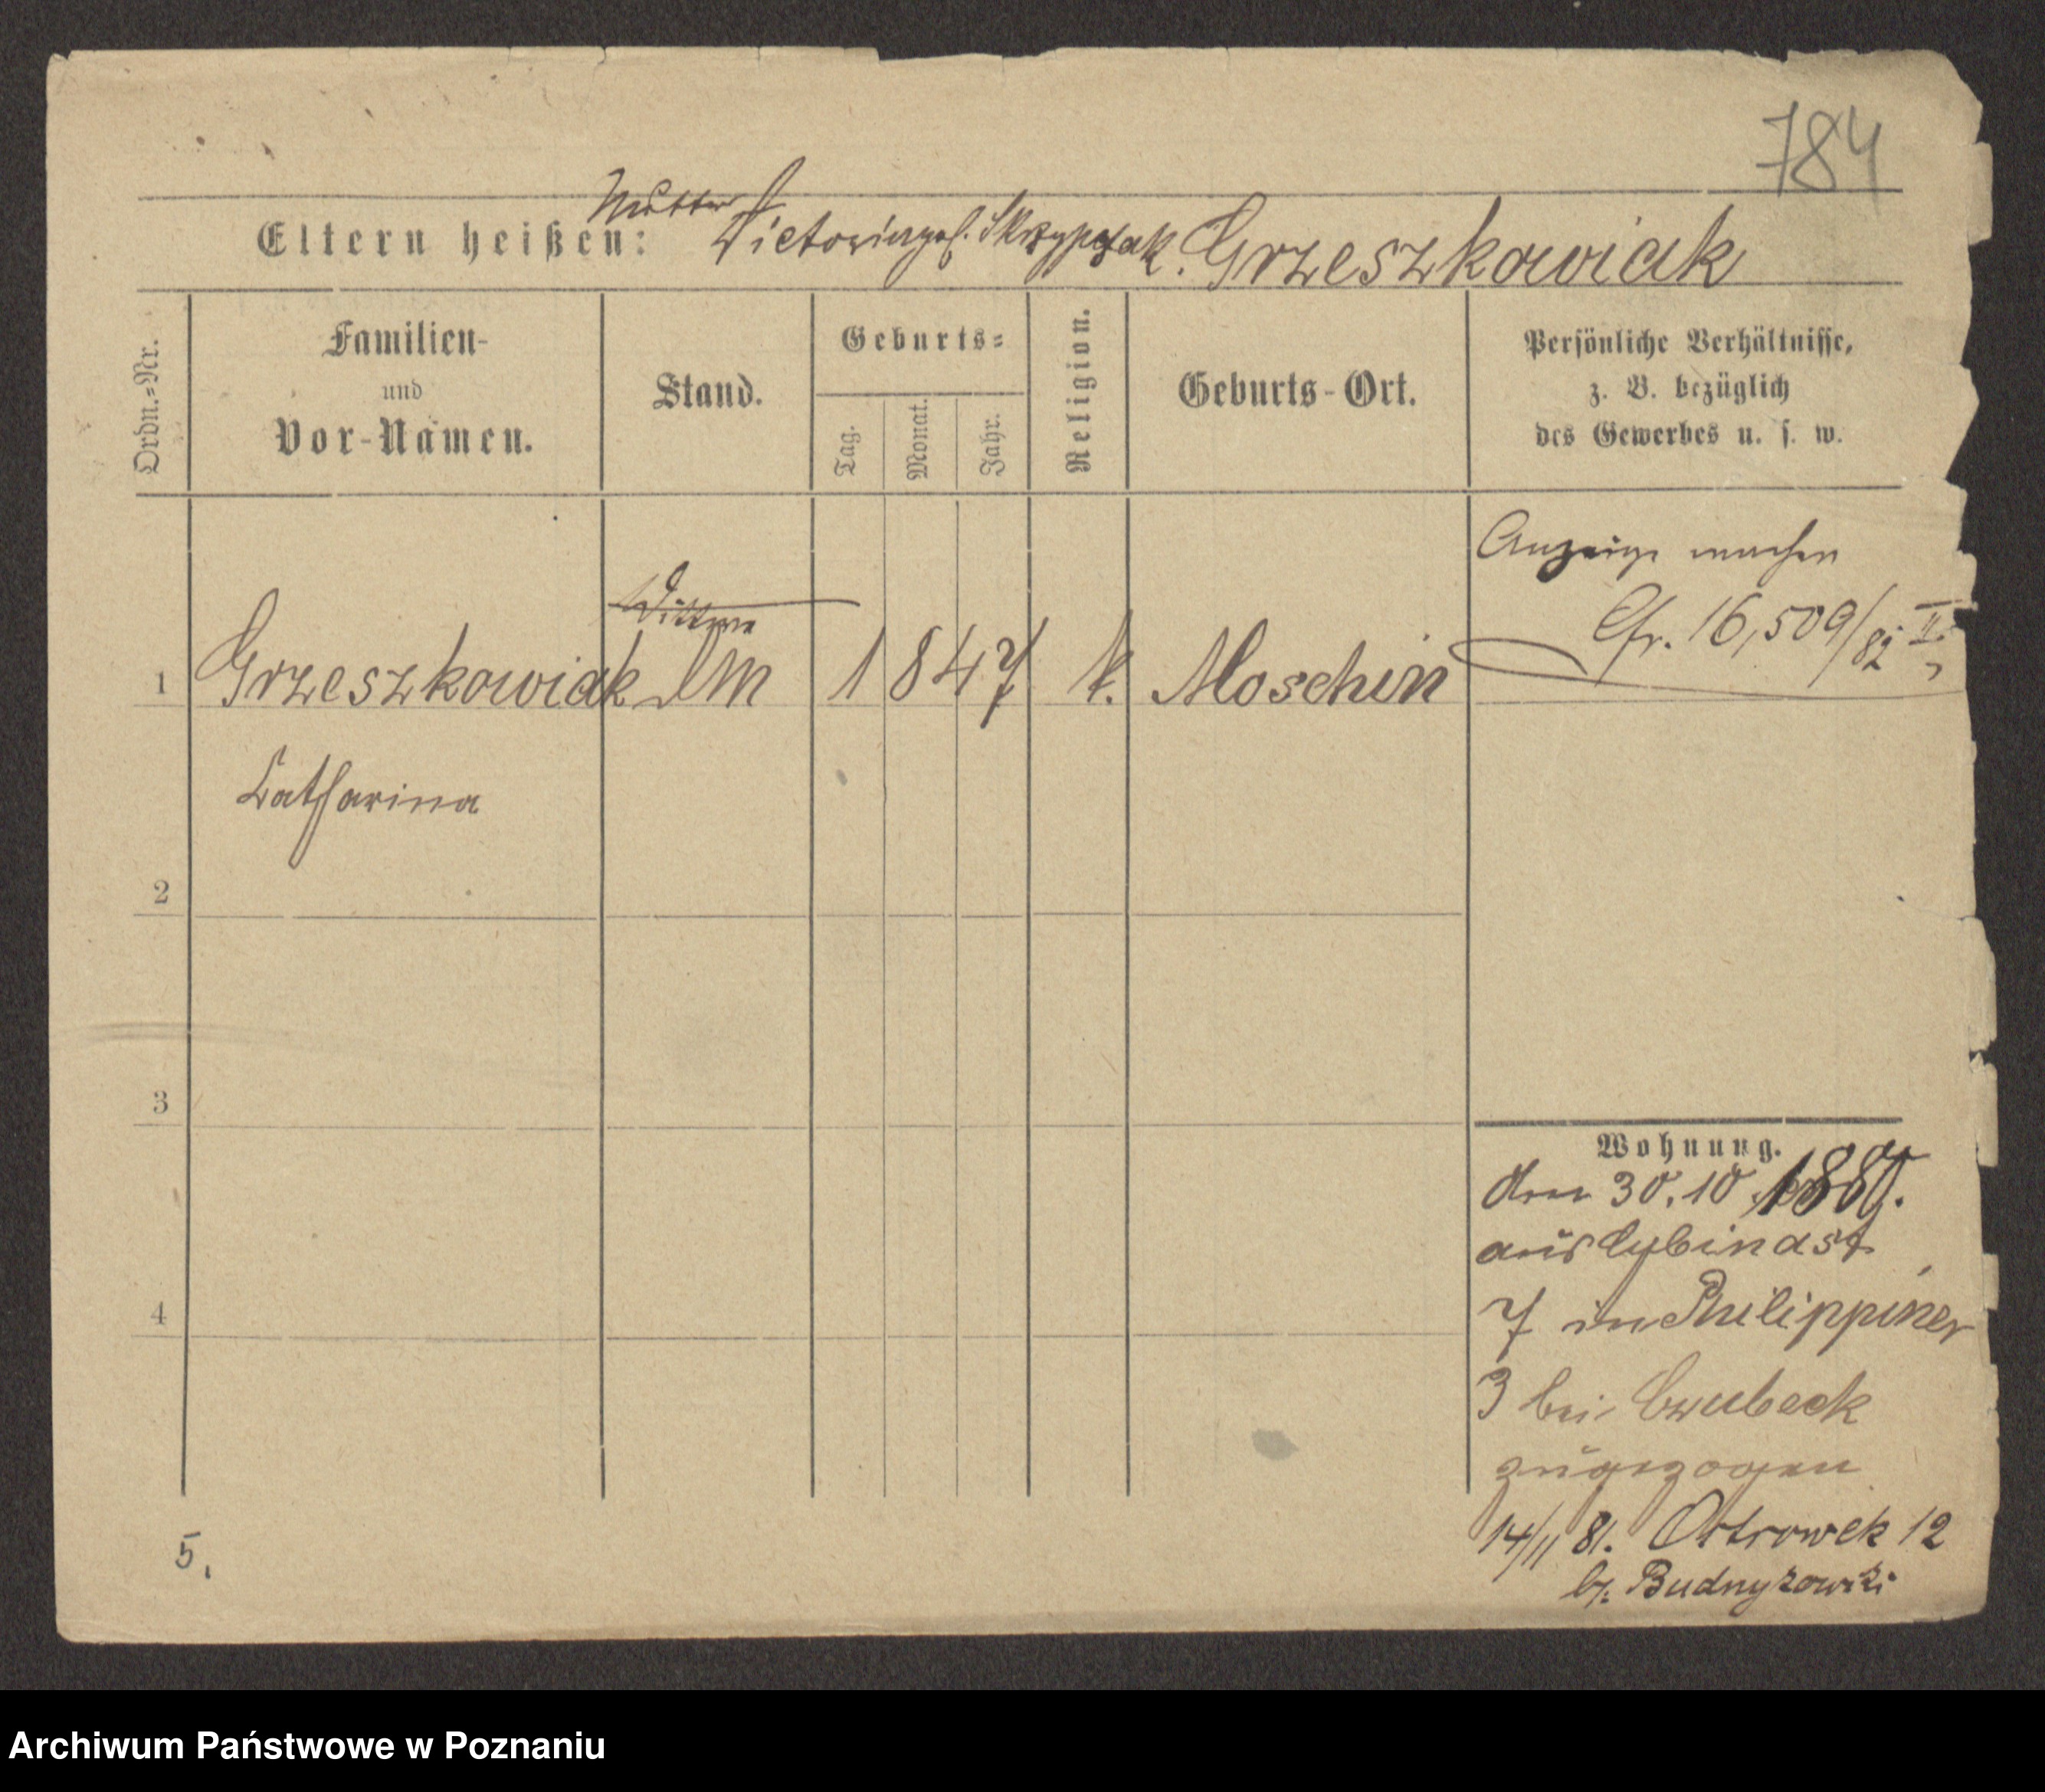 784
Mutter
Eltern heißen: Victoria geb. Skrzypczak. Grzeszkowiak
Ordn.=Nr.
Familien-
und
Vor-Namen.
Stand.
Geburts=
Tag.
Monat.
Jahr.
Religion.
Geburts-Ort.
Persönliche Verhältnisse,
z. B. bezüglich
des Gewerbes u. s. w.
Anzeige machen
Cfr. 16,509/82 II
Wittwe
1 Grzeszkowiak DM 1847 k. Moschin
Catharina
2
3
4
Wohnung.
den 30.10 1880.
aus Cybinast
7 in Philippiner
3 bei
zugezogen
14/11 81. Ostrowek 12
b.
5.
Archiwum Państwowe w Poznaniu